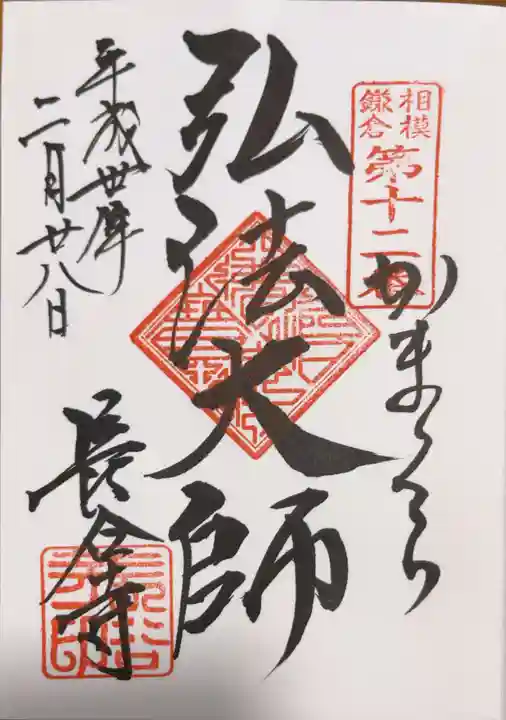 相模
鎌倉
第十二番
かまくら
弘法大師
平成卅年
二月廿八日
長谷寺